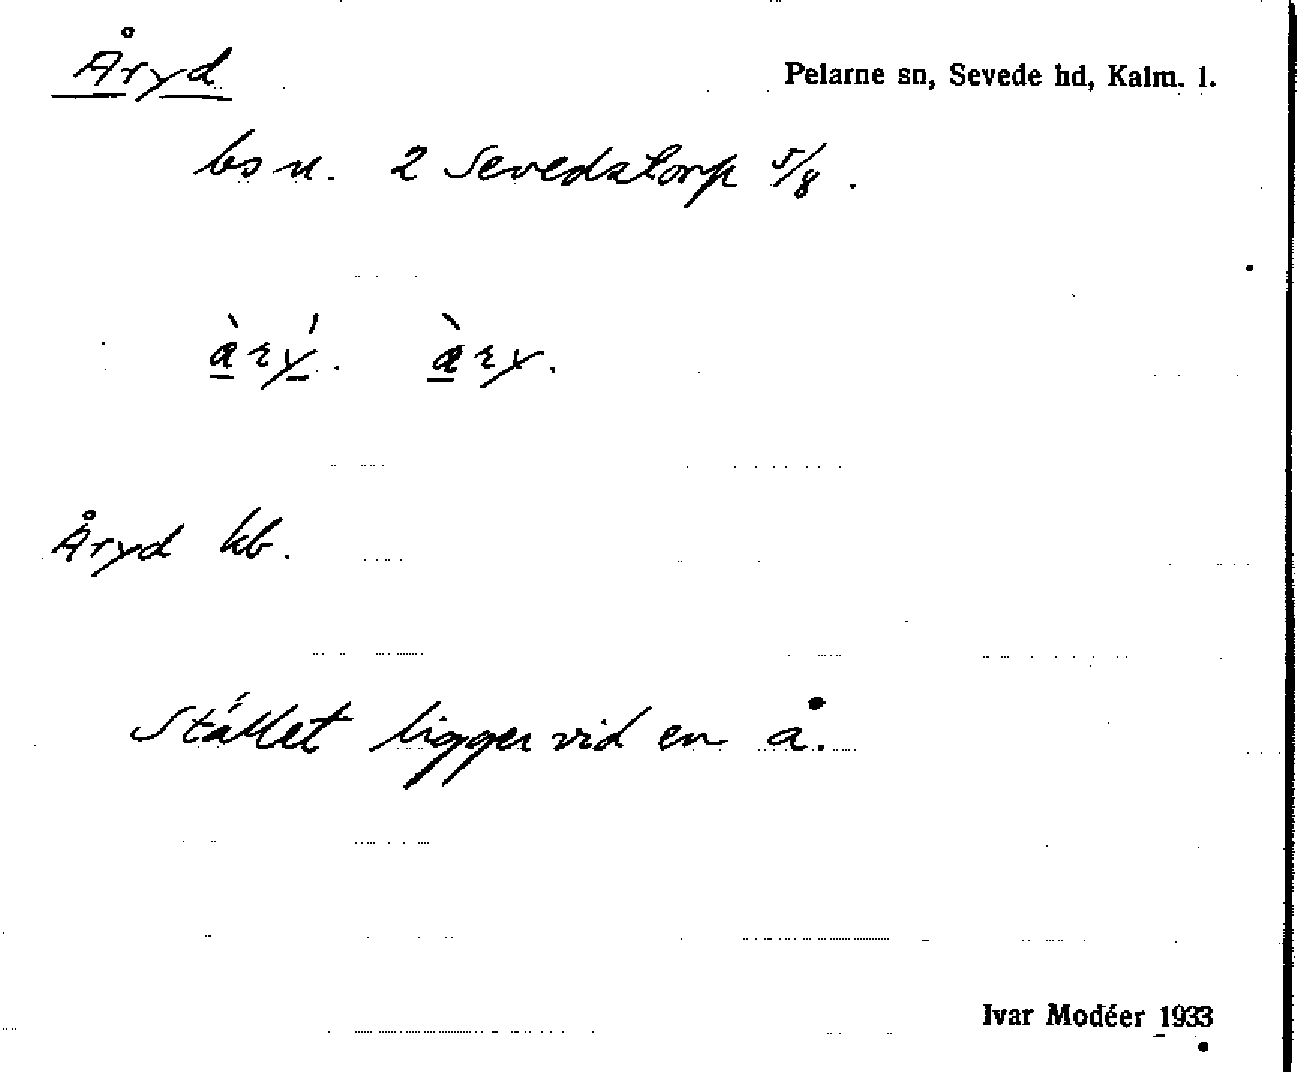 Åryd
Pelarne sn, Sevede hd, Kalm. l.
bs u. 2 Sevedstorp 5/8.
àrý. àry.
Åryd kb.
Stället ligger vid en å.
Ivar Modéer 1933